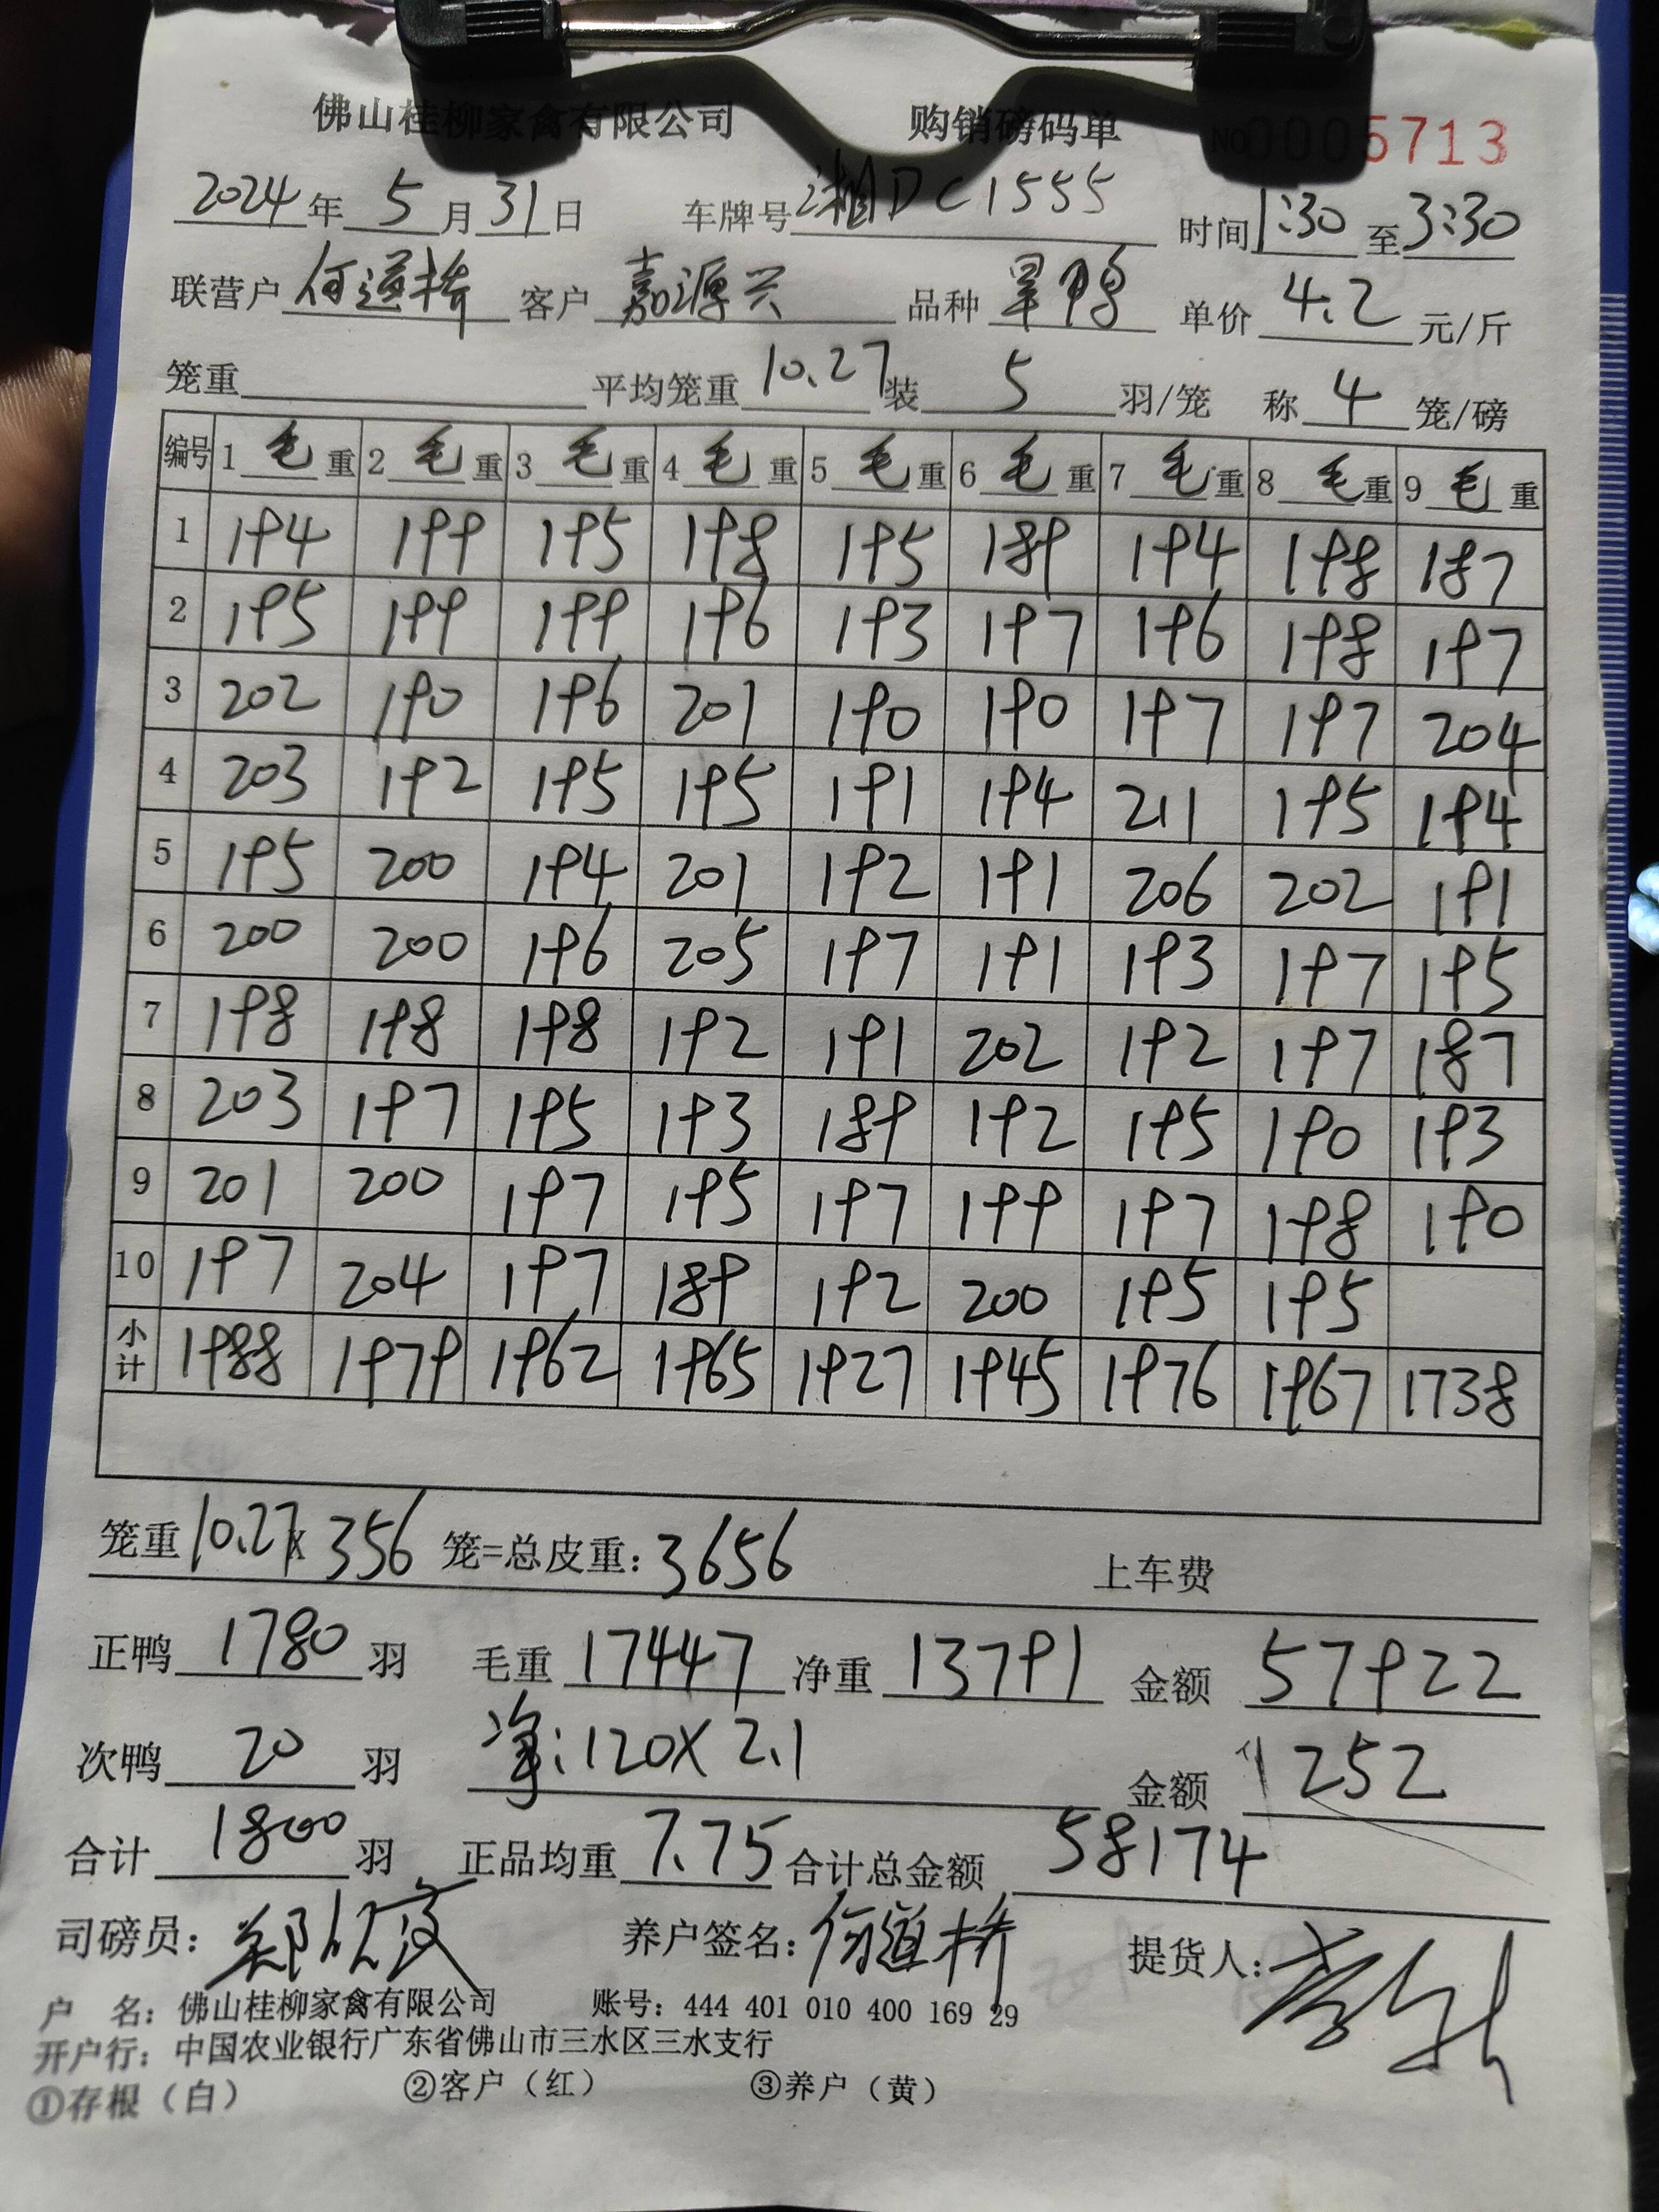 佛山桂柳家禽有限公司 购销磅码单 NO 0005713
2024年5月31日 车牌号 湘DC1555 时间 1:30 至 3:30
联营户 何道桥 客户 嘉源兴 品种 旱鸭 单价 4.2 元/斤
笼重 平均笼重 10.27 装 5 羽/笼 称 4 笼/磅
编号 1 毛 重 2 毛 重 3 毛 重 4 毛 重 5 毛 重 6 毛 重 7 毛 重 8 毛 重 9 毛 重
1 194 199 195 198 195 189 194 198 187
2 195 199 199 196 193 197 196 198 197
3 202 190 196 201 190 190 197 197 204
4 203 192 195 195 191 194 211 195 194
5 195 200 194 201 192 191 206 202 191
6 200 200 196 205 197 191 193 197 195
7 198 198 198 192 191 202 192 197 187
8 203 197 195 193 189 192 195 190 193
9 201 200 197 195 197 199 197 198 190
10 197 204 197 189 192 200 195 195
小计 1988 1979 1962 1965 1927 1945 1976 1967 1738
笼重 10.27 x 356 笼=总皮重: 3656 上车费
正鸭 1780 羽 毛重 17447 净重 13791 金额 57922
次鸭 20 羽 净:120X2.1 金额 252
合计 1800 羽 正品均重 7.75 合计总金额 58174
司磅员: 郑 养户签名: 何道桥 提货人:
户 名: 佛山桂柳家禽有限公司 账号: 444 401 010 400 169 29
开户行: 中国农业银行广东省佛山市三水区三水支行
①存根（白） ②客户（红） ③养户（黄）